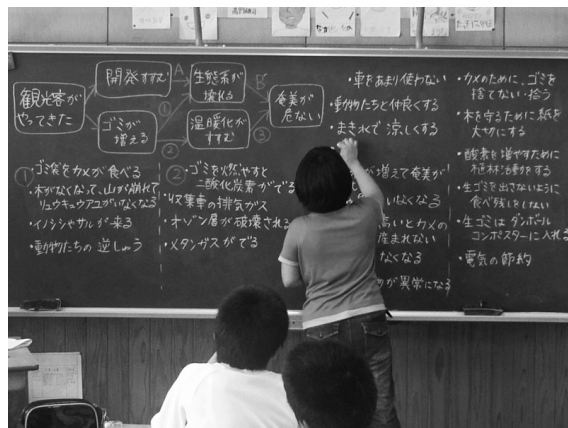 観光客が
やってきた
開発すすむ
ゴミが
増える
A
①
②
生態系が
壊れる
温暖化が
すすむ
B
③
奄美が
危ない
①
・ゴミ袋をカメが食べる
・木がなくなって、山が崩れて
リュウキュウアユがいなくなる
・イノシシやサルが来る
・動物たちの逆しゅう
②
・ゴミを燃やすと
二酸化炭素がでる
・収集車の排気ガス
・オゾン層が破壊される
・メタンガスがでる
・車をあまり使わない
・動物たちと仲良くする
・まきわで涼しくする
が増えて奄美が
いなくなる
高いとカメの
産まれない
なくなる
が異常になる
・カメのために、ゴミを
捨てない・拾う
・木を守るために紙を
大切にする
・酸素を増やすために
植林活動をする
・生ゴミを出さないように
食べ残しをしない
・生ゴミはダンボール
コンポスターに入れる
・電気の節約